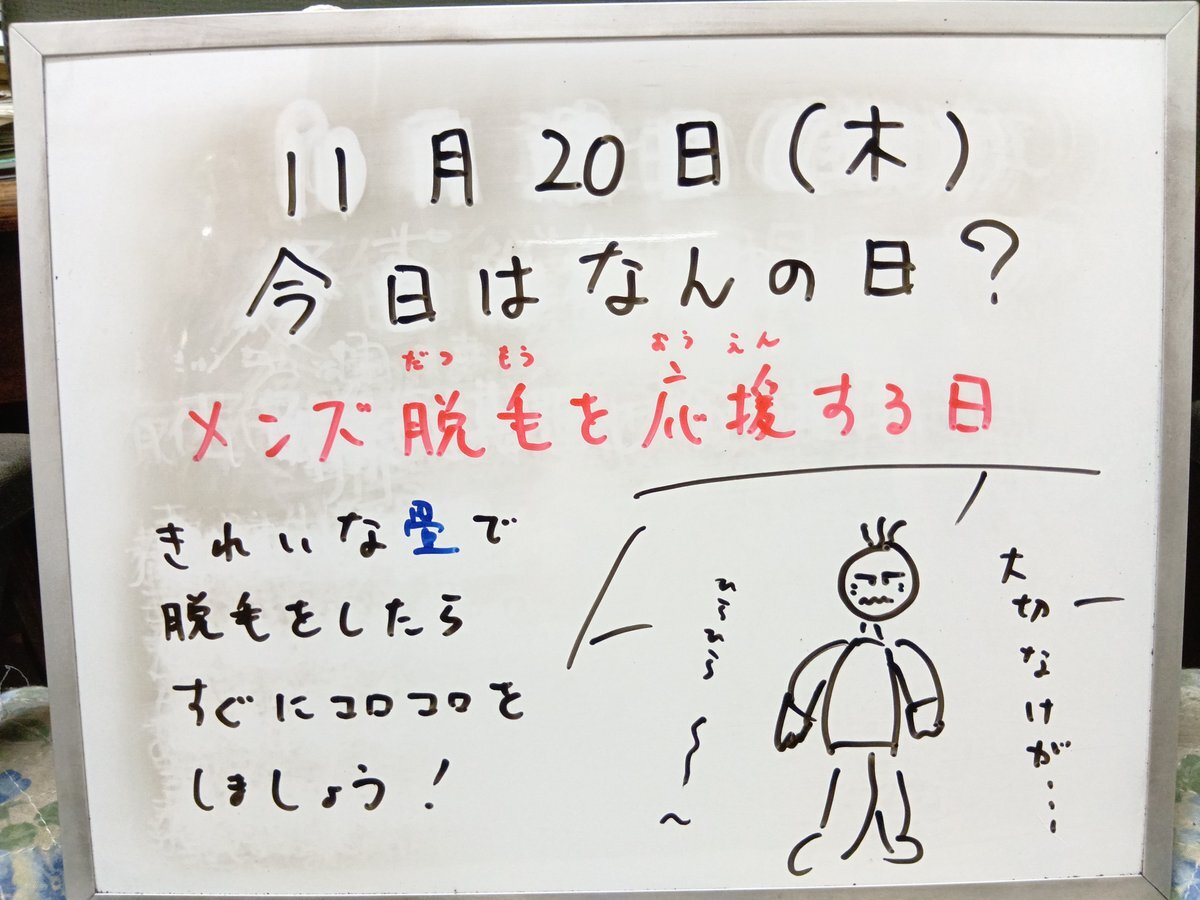 11月20日(木)
今日はなんの日?
だつ もう おう えん
メンズ脱毛を応援する日
きれいな畳で
脱毛をしたら
すぐにコロコロを
しましょう!
ひらひら
大切なけが…